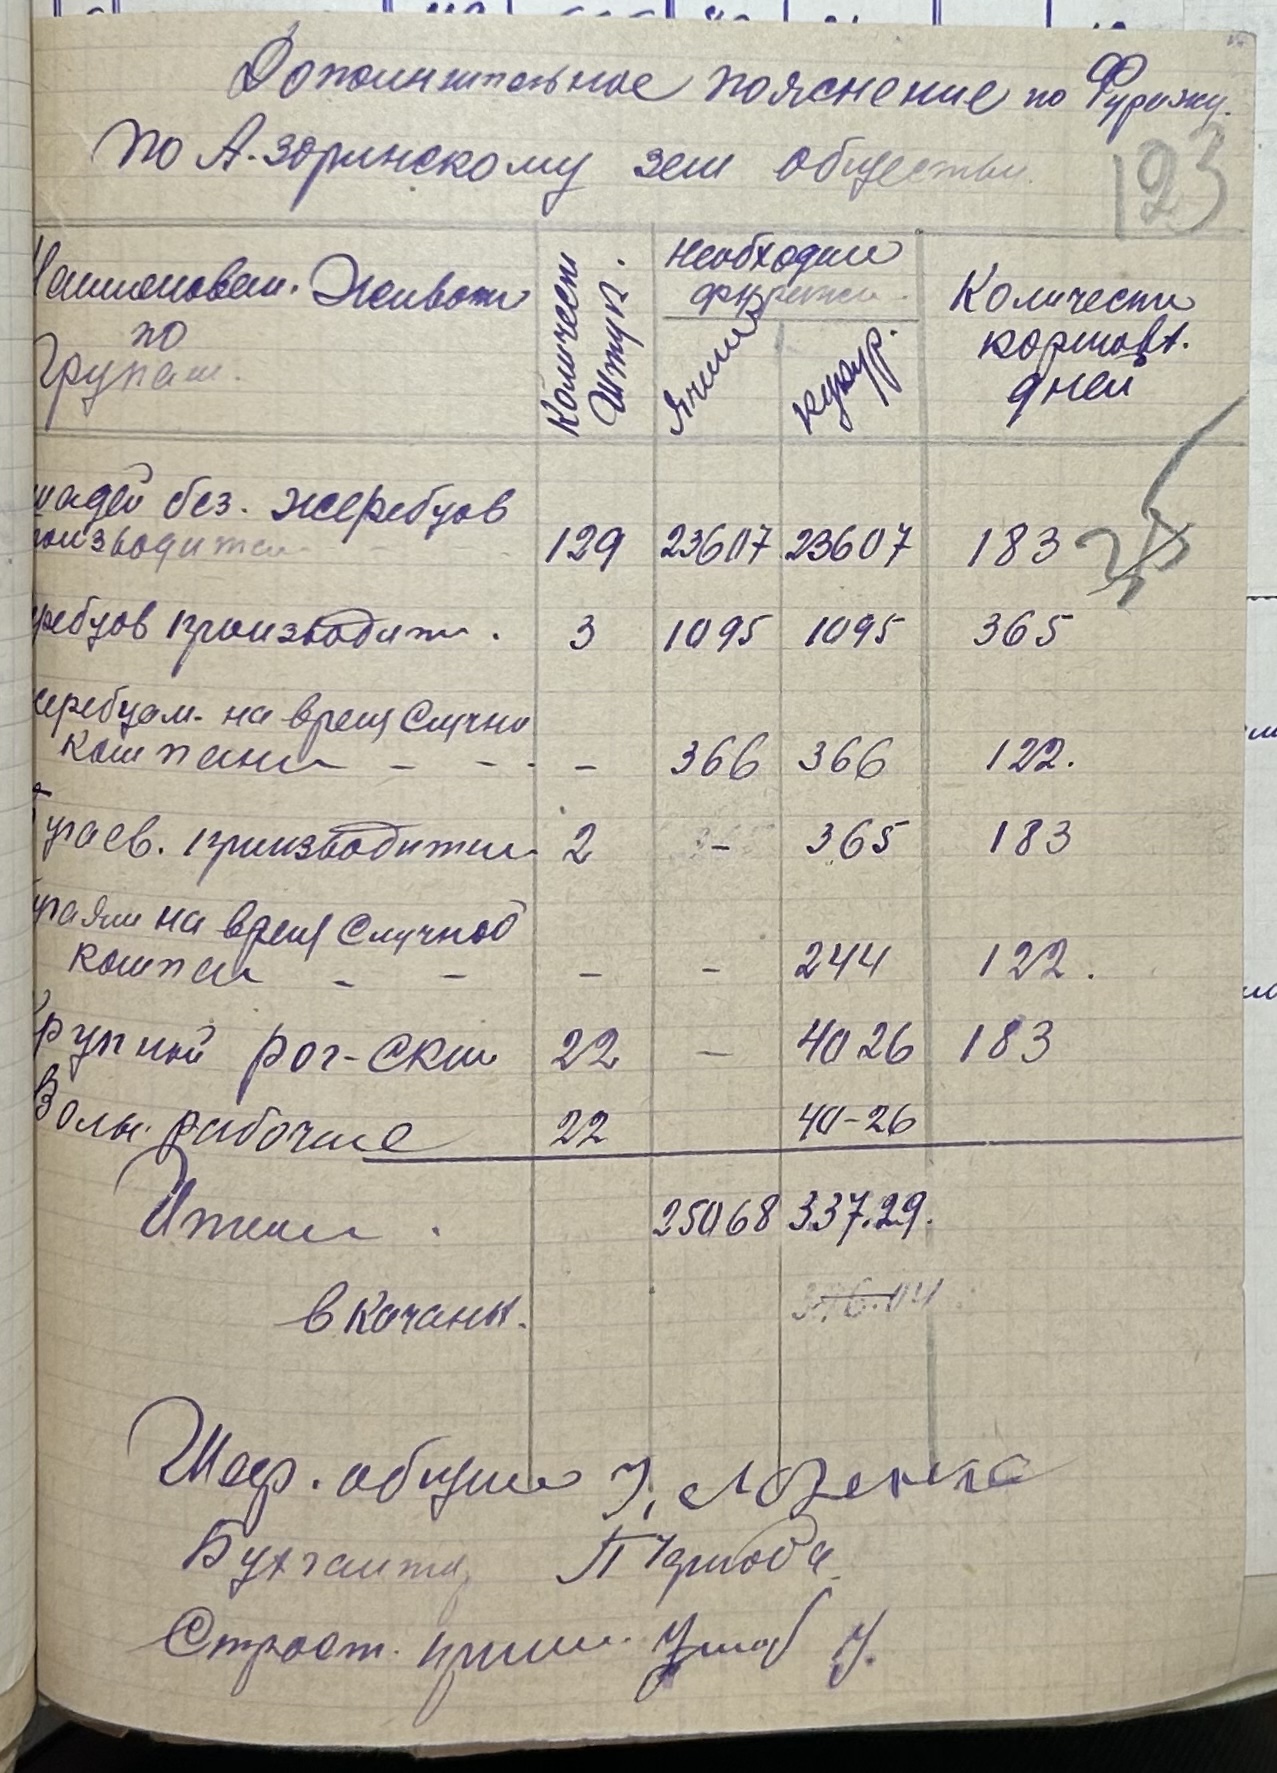 Дополнительное пояснение по Фуражу.
по А. Зоринскому зем обществу
123
Наименован. Животн
по
Групам.
Количест
Штук.
Необходим
фуража
Ячмен
кукур.
Количеств
кормов.
дней
шадей без. жеребцов
роизводител
129 23607 23607 183
ребцов производит. 3 1095 1095 365
еребцам. на время Случно
компани - - - - 366 366 122.
Бугаев. производител 2 - 365 183
угаям на время Случной
компан - - - - 244 122.
Крупной рог-Ско 22 - 4026 183
Волы. рабочие 22 40-26
Итого. 25068 337.29.
в качанах.
Шаф. общин
Бухгалтер